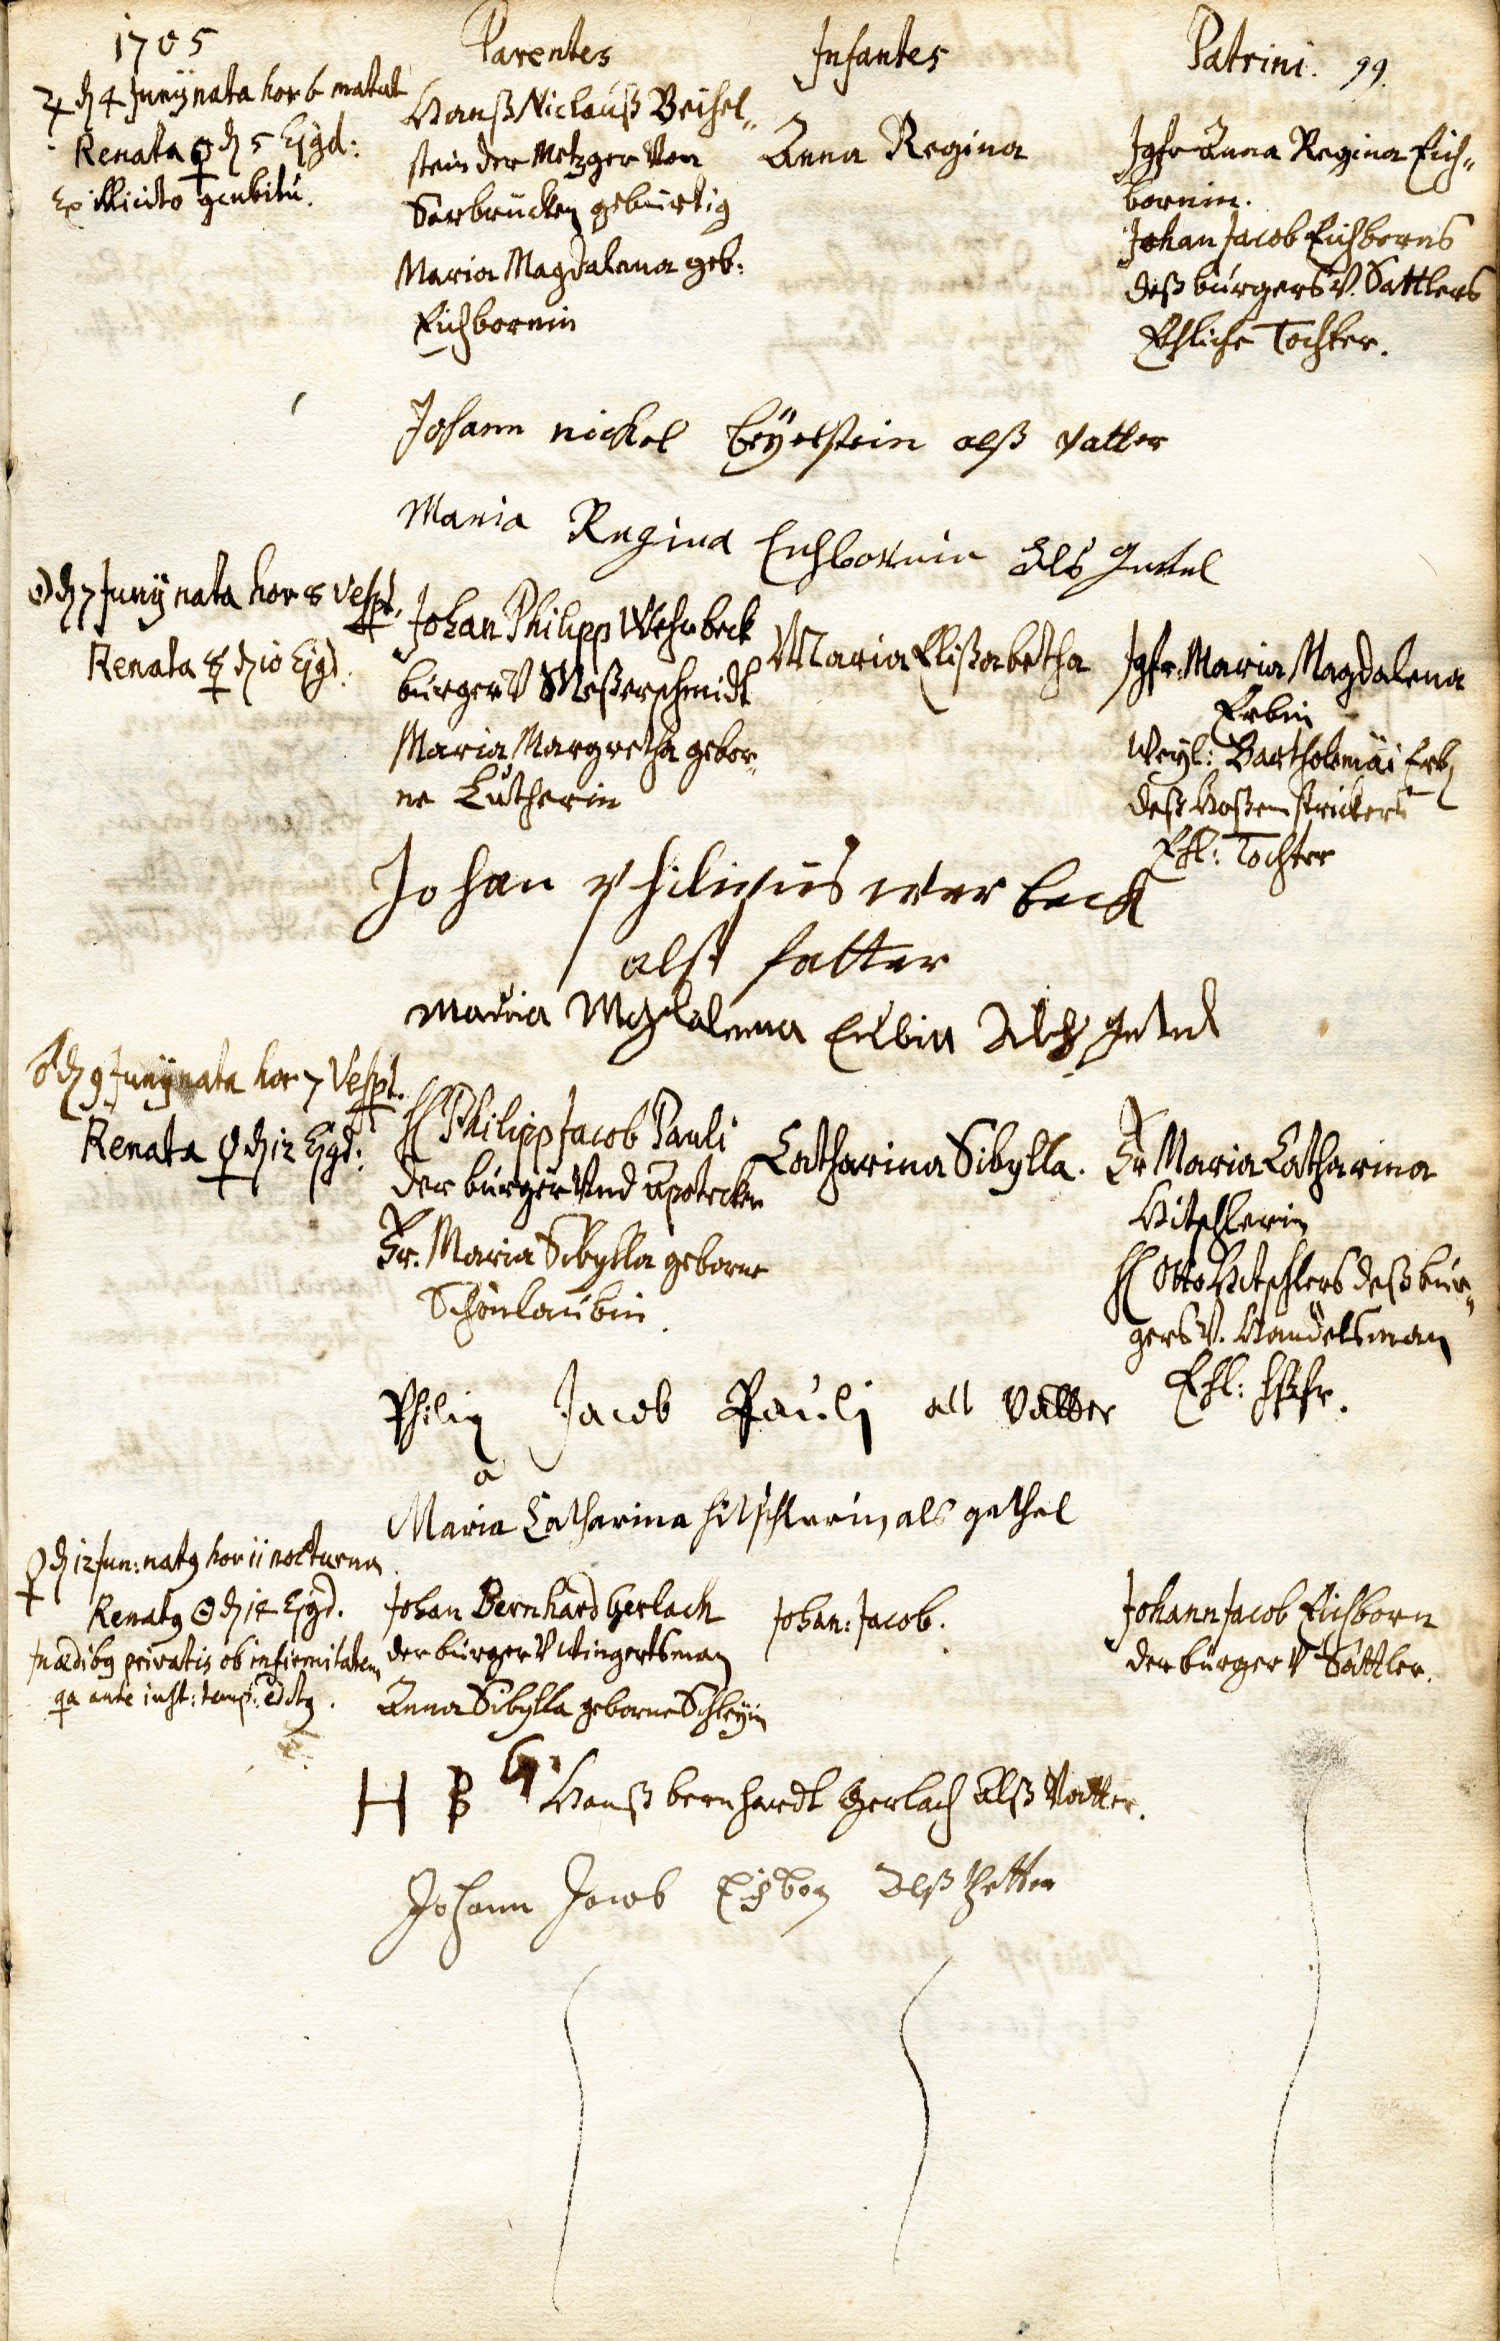 1705
Parentes
Infantes
Patrini. 99.
♃ d 4 Junÿ nata hor 6 matut
Renata ♀ d 5 Ejgd:
Ex illicito
Hanß Niclauß Beisel„
stein der Metzger von
Sarbrücken gebürtig
Maria Magdalena geb:
Eichbornin
Anna Regina
Jgfr Anna Regina Eich„
bornin.
Johan Jacob Eichborns
deß burgers v. Sattlers
Ehliche Tochter.
Johann nickel beÿelstein alß vatter
Maria Regina Eichbornin Als
☉ d 7 Junÿ nata hor 8 vespt.
Renata ☿ d 10 Ejgd.
Johan Philipp Wehrbeck
burger v Meßerschmidt
Maria Margretha gebor„
ne Lutherin
Maria Elißabetha
Jgfr. Maria Magdalena
Erbin
Weyl: Bartholemäi Erb
deß Hoßenstrickers
Ehl: Tochter
Johan philipus wer beck
alß fatter
maria Magdalena Erbin Alß
♂ d 9 Junÿ nata hor 7 Vespt.
Renata ♀ d 12 Ejgd:
H Philipp Jacob Pauli
der burger Vnd Apotecker
Fr. Maria Sibylla geborne
Schönlaubin.
Catharina Sibylla.
Fr Maria Catharina
Hitschlerin
H Otto Hitschlers deß bur„
gers v. Handelsman
Ehl: hßfr.
Philip Jacob Pauli als Vatter
Maria Catharina hitschlerin, als gethel
♀ d 12 Jun: natg hor 11 nocturna
Renatg ☉ d 14 Ejgd.
In ædibg privatis ob infirmitatem
qa ante iust: temp: editg.
Johan Bernhard Gerlach
der burger v wingertsman
Anna Sibylla geborne Schleÿin
Johan: Jacob.
Johann Jacob Eichborn
der burger v Sattler.
H B G Hanß bernhardt Gerlach alß Vatter.
Johann Jacob Eichborn Alß